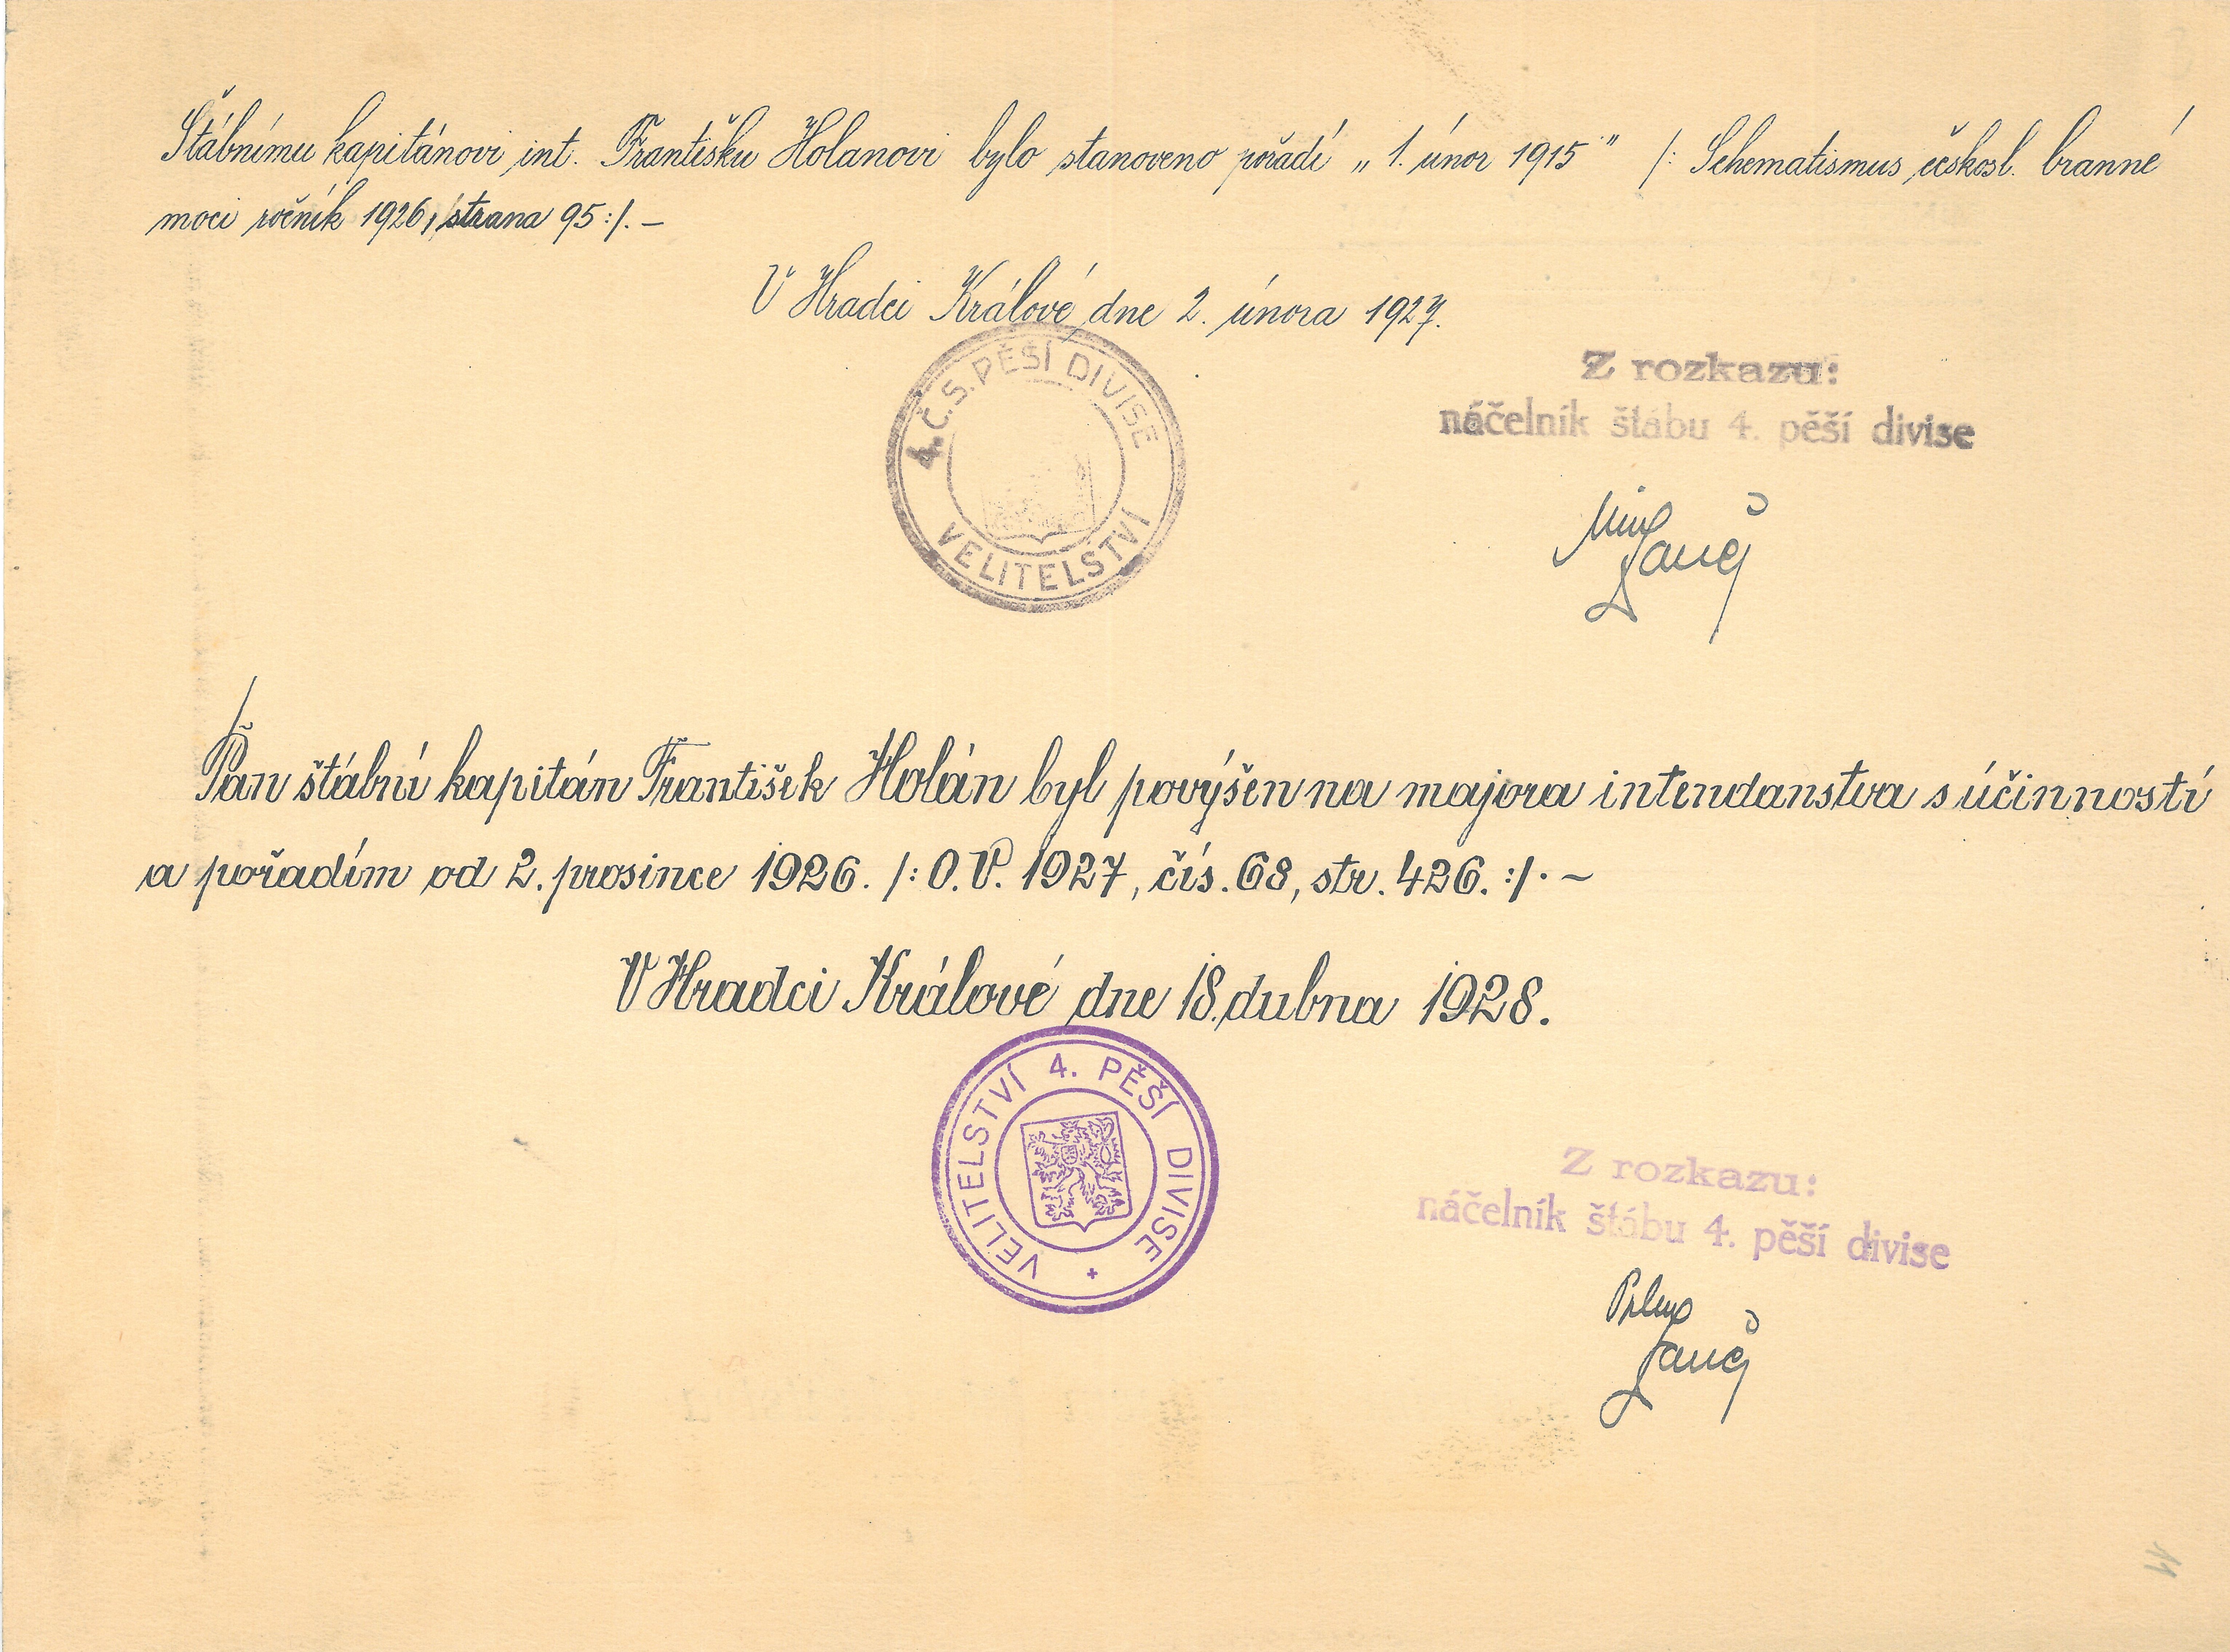 Štábnímu kapitánovi int. Františku Holanovi bylo stanoveno pořadí „1. únor 1915" /: Schematismus českosl. branné
moci ročník 1926, strana 95:/. –
V Hradci Králové dne 2. února 1927.
4. Č.S. PĚŠÍ DIVISE
VELITELSTVÍ
Z rozkazu:
náčelník štábu 4. pěší divise
Pan štábní kapitán František Holán byl povýšen na majora intendanstva s účinností
a pořadím od 2. prosince 1926. /: O.V. 1927, čís. 68, str. 426. :/. –
V Hradci Králové dne 18. dubna 1928.
VELITELSTVÍ 4. PĚŠÍ DIVISE
Z rozkazu:
náčelník štábu 4. pěší divise
11